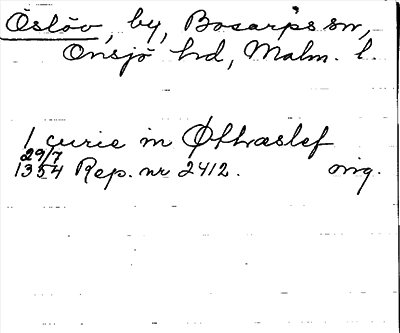 Öslöv, by, Bosarps sn,
Onsjö hd, Malm. l.
1 curie in Øthæslef
29/7
1354 Rep. nr 2412. orig.